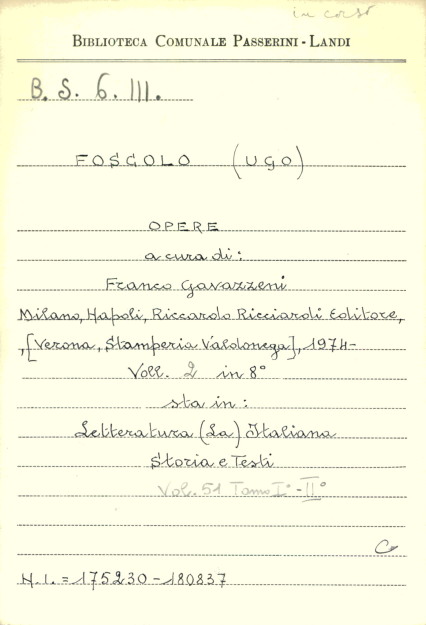 in corso
BIBLIOTECA COMUNALE PASSERINI - LANDI
B. S. 6. III.
FOSCOLO (UGO)
OPERE
a cura di:
Franco Gavazzeni
Milano, Napoli, Riccardo Ricciardi Editore,
,[Verona, Stamperia Valdonega], 1974-
Voll. 2 in 8°
sta in:
Letteratura (La) Italiana
Storia e Testi
Vol. 51 Tomo I° - II°
N.I. = 175230 - 180837